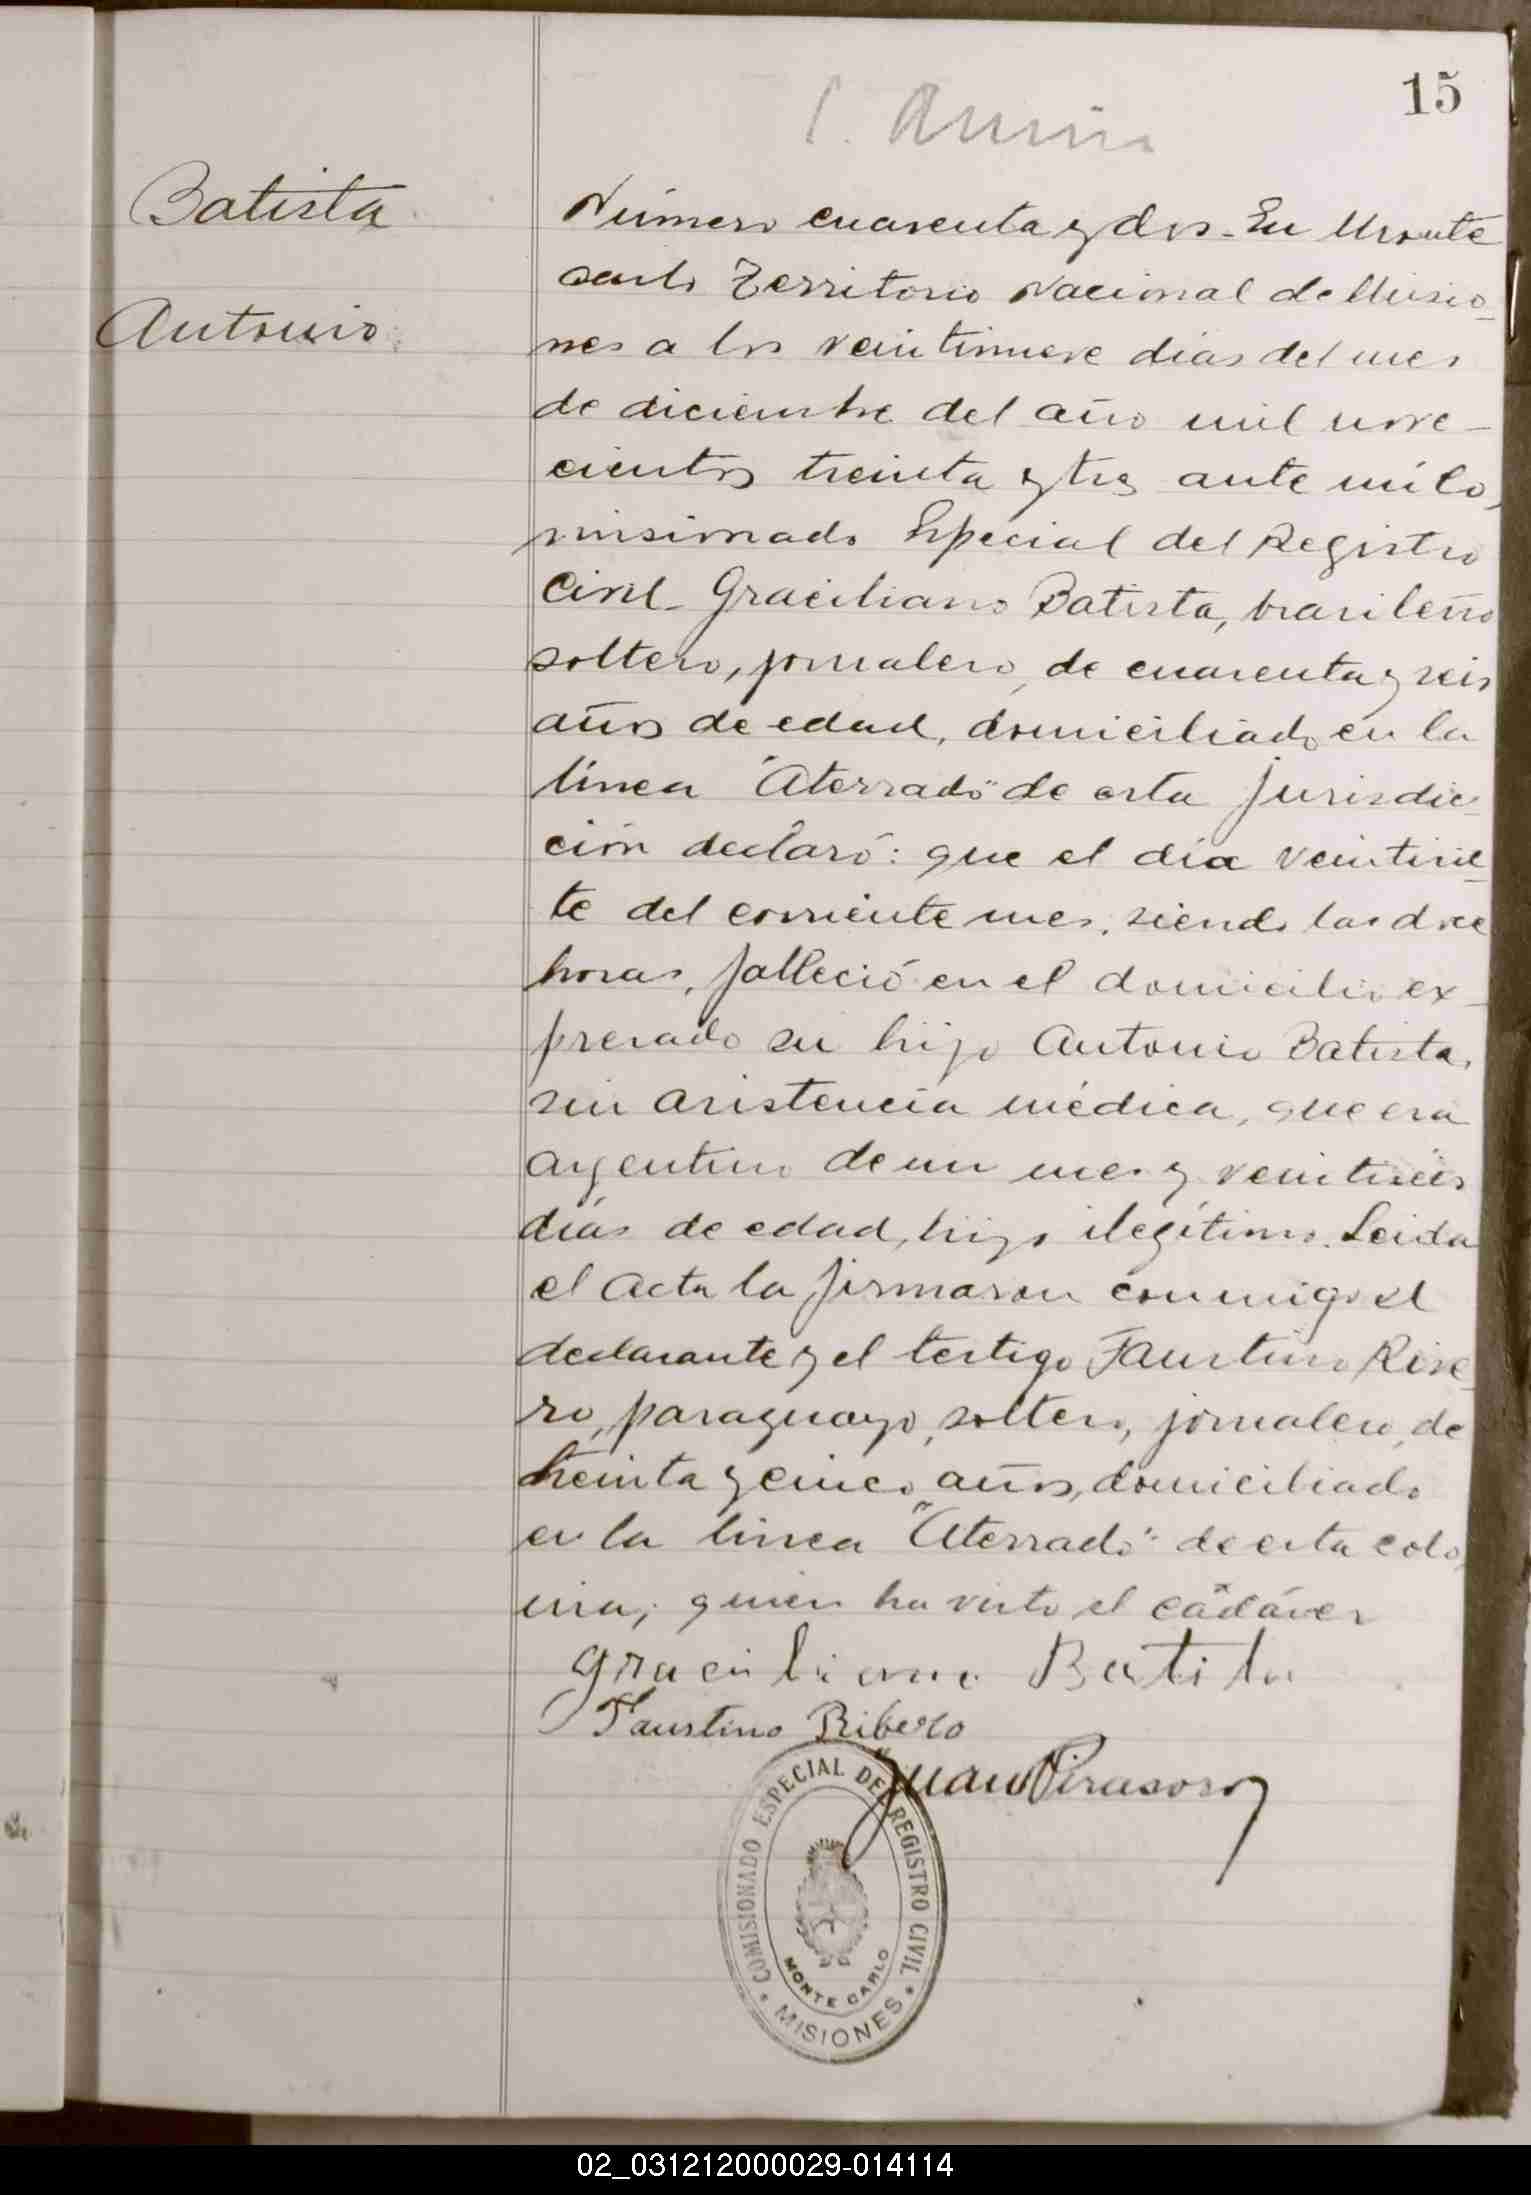 15
Batista
Antonio
Número cuarenta y dos - En Monte
carlo Territorio Nacional de Misio-
nes a los veintinueve días del mes
de diciembre del año mil nove-
cientos treinta y tres ante mí Co,
misionado Especial del Registro
Civil - Graciliano Batista, brasileño
soltero, jornalero, de cuarenta y seis
años de edad, domiciliado en la
línea "Aterrado" de esta jurisdic-
ción declaró: que el día veintisie-
te del corriente mes, siendo las doce
horas, falleció en el domicilio ex-
presado su hijo Antonio Batista,
sin asistencia médica, que era
argentino de un mes y veintiseis
días de edad, hijo ilegítimo. Leida
el acta la firmaron conmigo el
declarante y el testigo Faustino Rive-
ro, paraguayo, soltero, jornalero, de
treinta y cinco años, domiciliado
en la línea "Aterrado" de esta colo,
nia; quien ha visto el cadáver
Graciliano Batista
Faustino Ribero
Juan Pirasoro
COMISIONADO ESPECIAL DEL REGISTRO CIVIL
MONTE CARLO
MISIONES
02_031212000029-014114